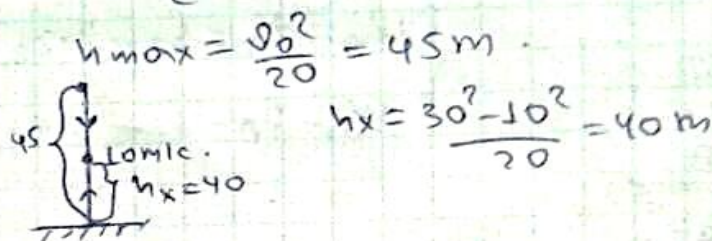 hmax = ϑ0² / 20 = 45 m.
hx = 30² - 10² / 20 = 40 m
45
10 m/c.
hx = 40